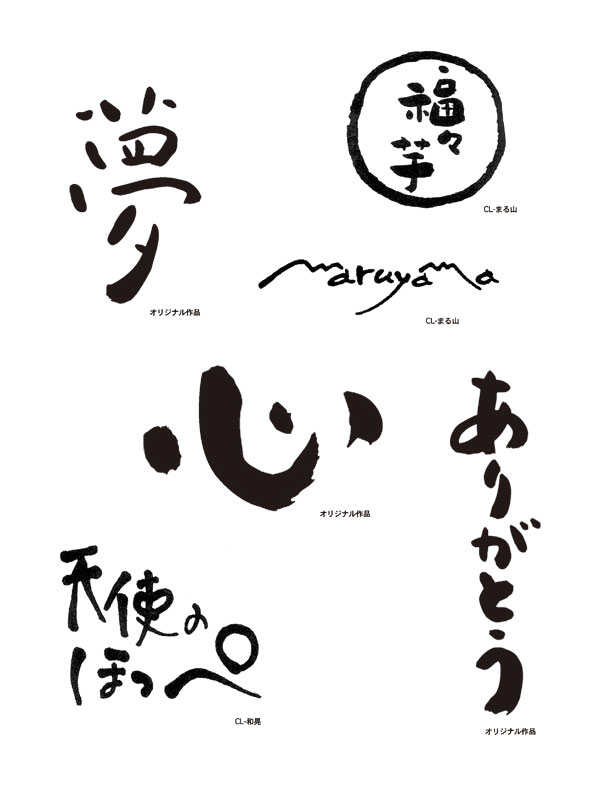 夢
オリジナル作品
福々
芋
CL-まる山
maruyama
CL-まる山
心
オリジナル作品
ありがとう
オリジナル作品
天使の
ほっぺ
CL-和晃